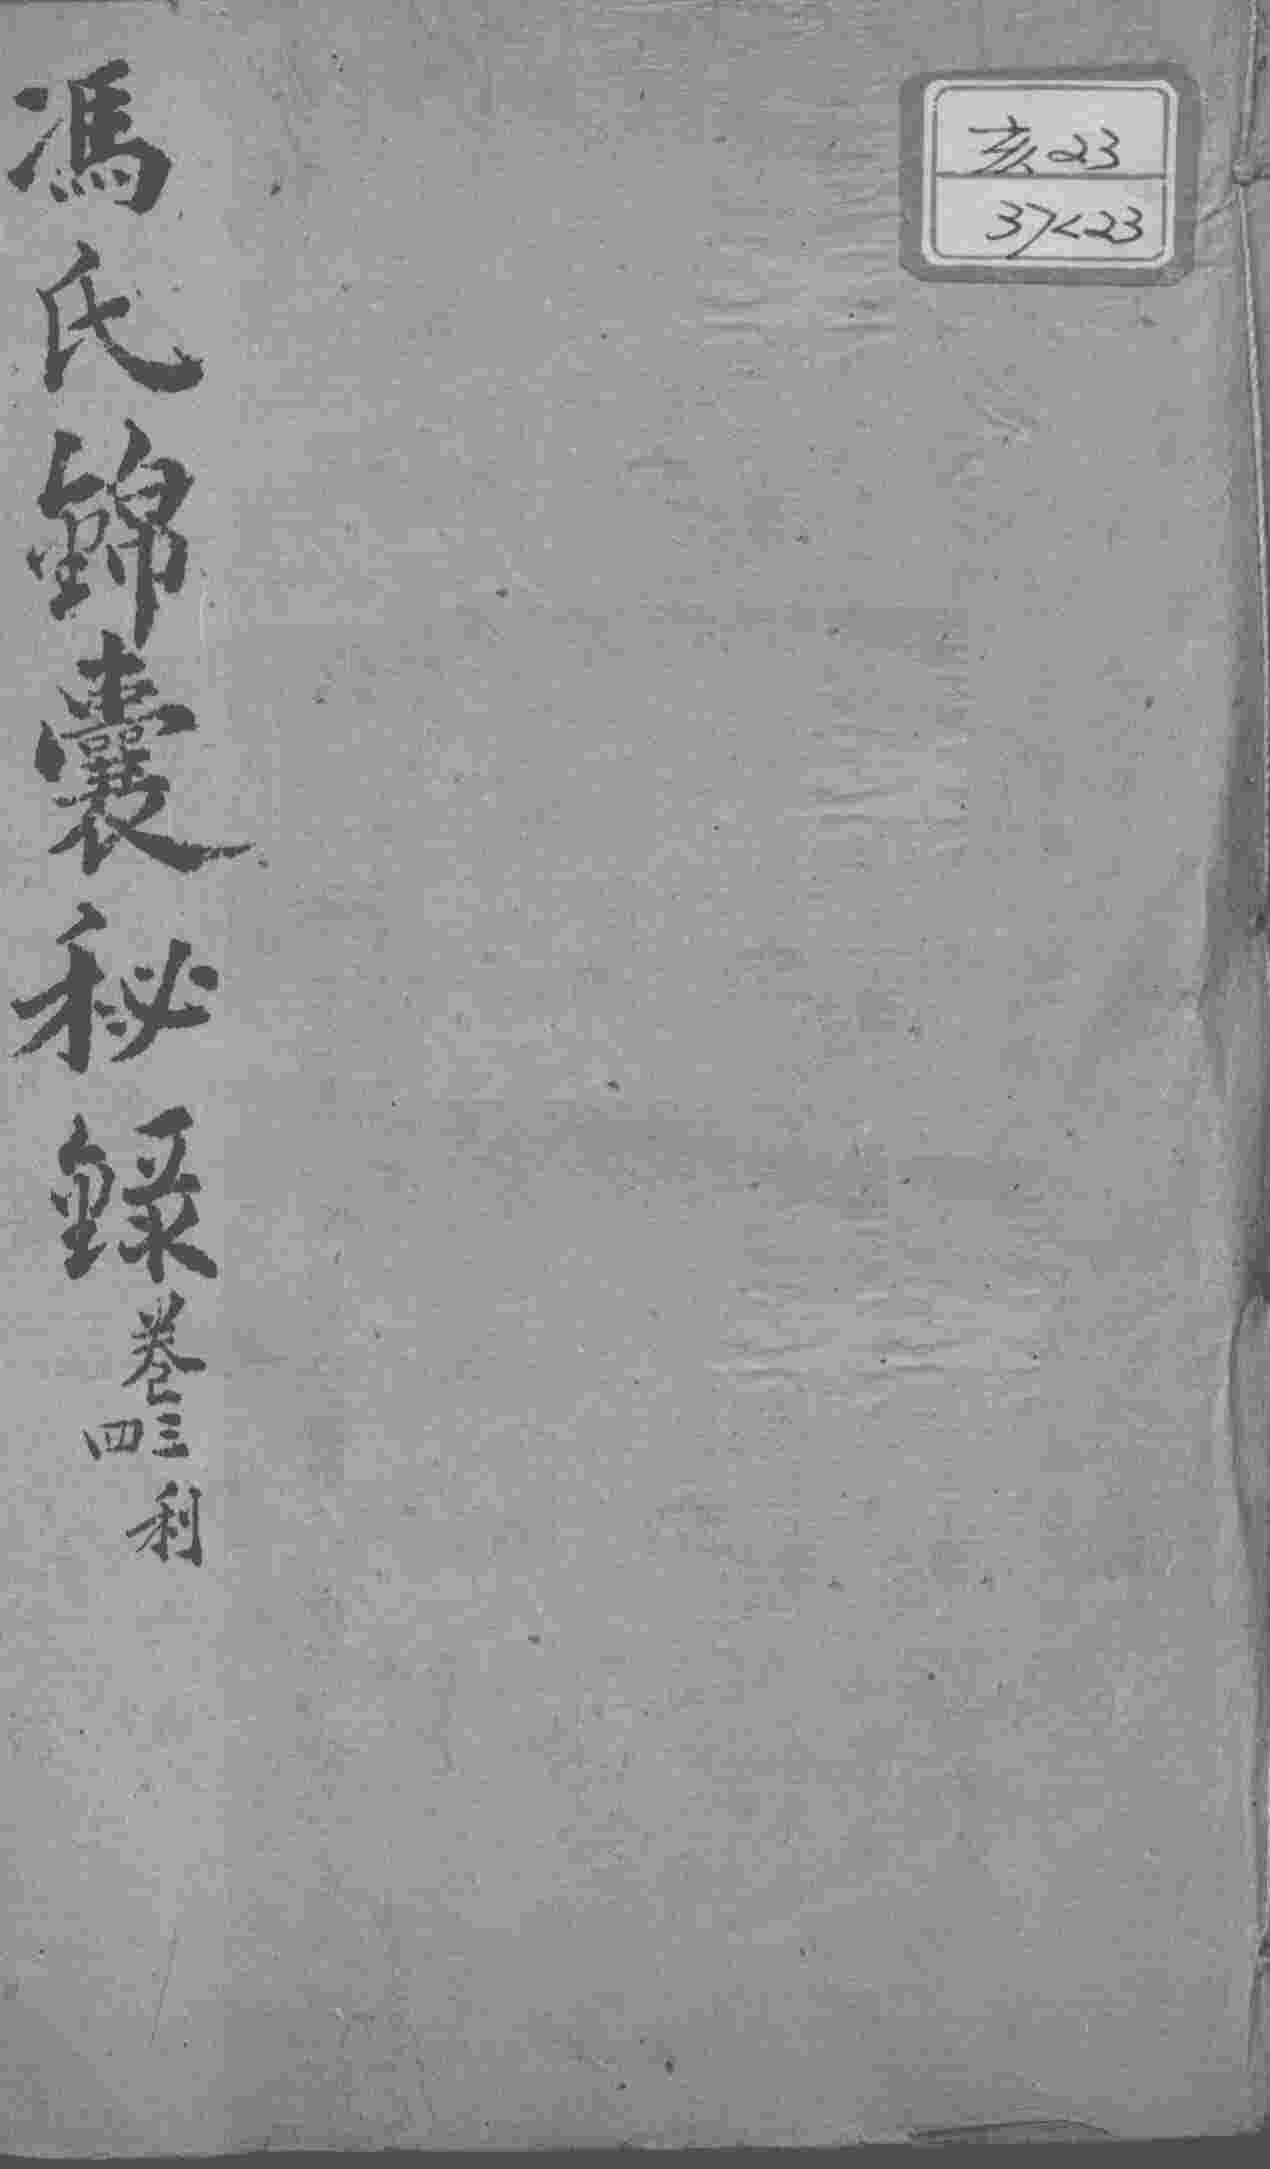 亥23
37<23
馮氏錦囊秘錄
卷三四
利